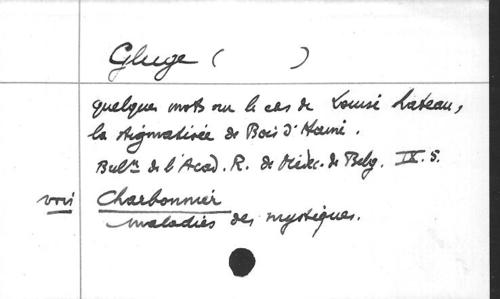 Gluge ( )
quelques mots sur le cas de Louise Lateau,
la stigmatisée de Bois d'Haine.
Bulⁿ de l'Acad. R. de Médec. de Belg. IX. S.
voir Charbonnier
maladies des mystiques.